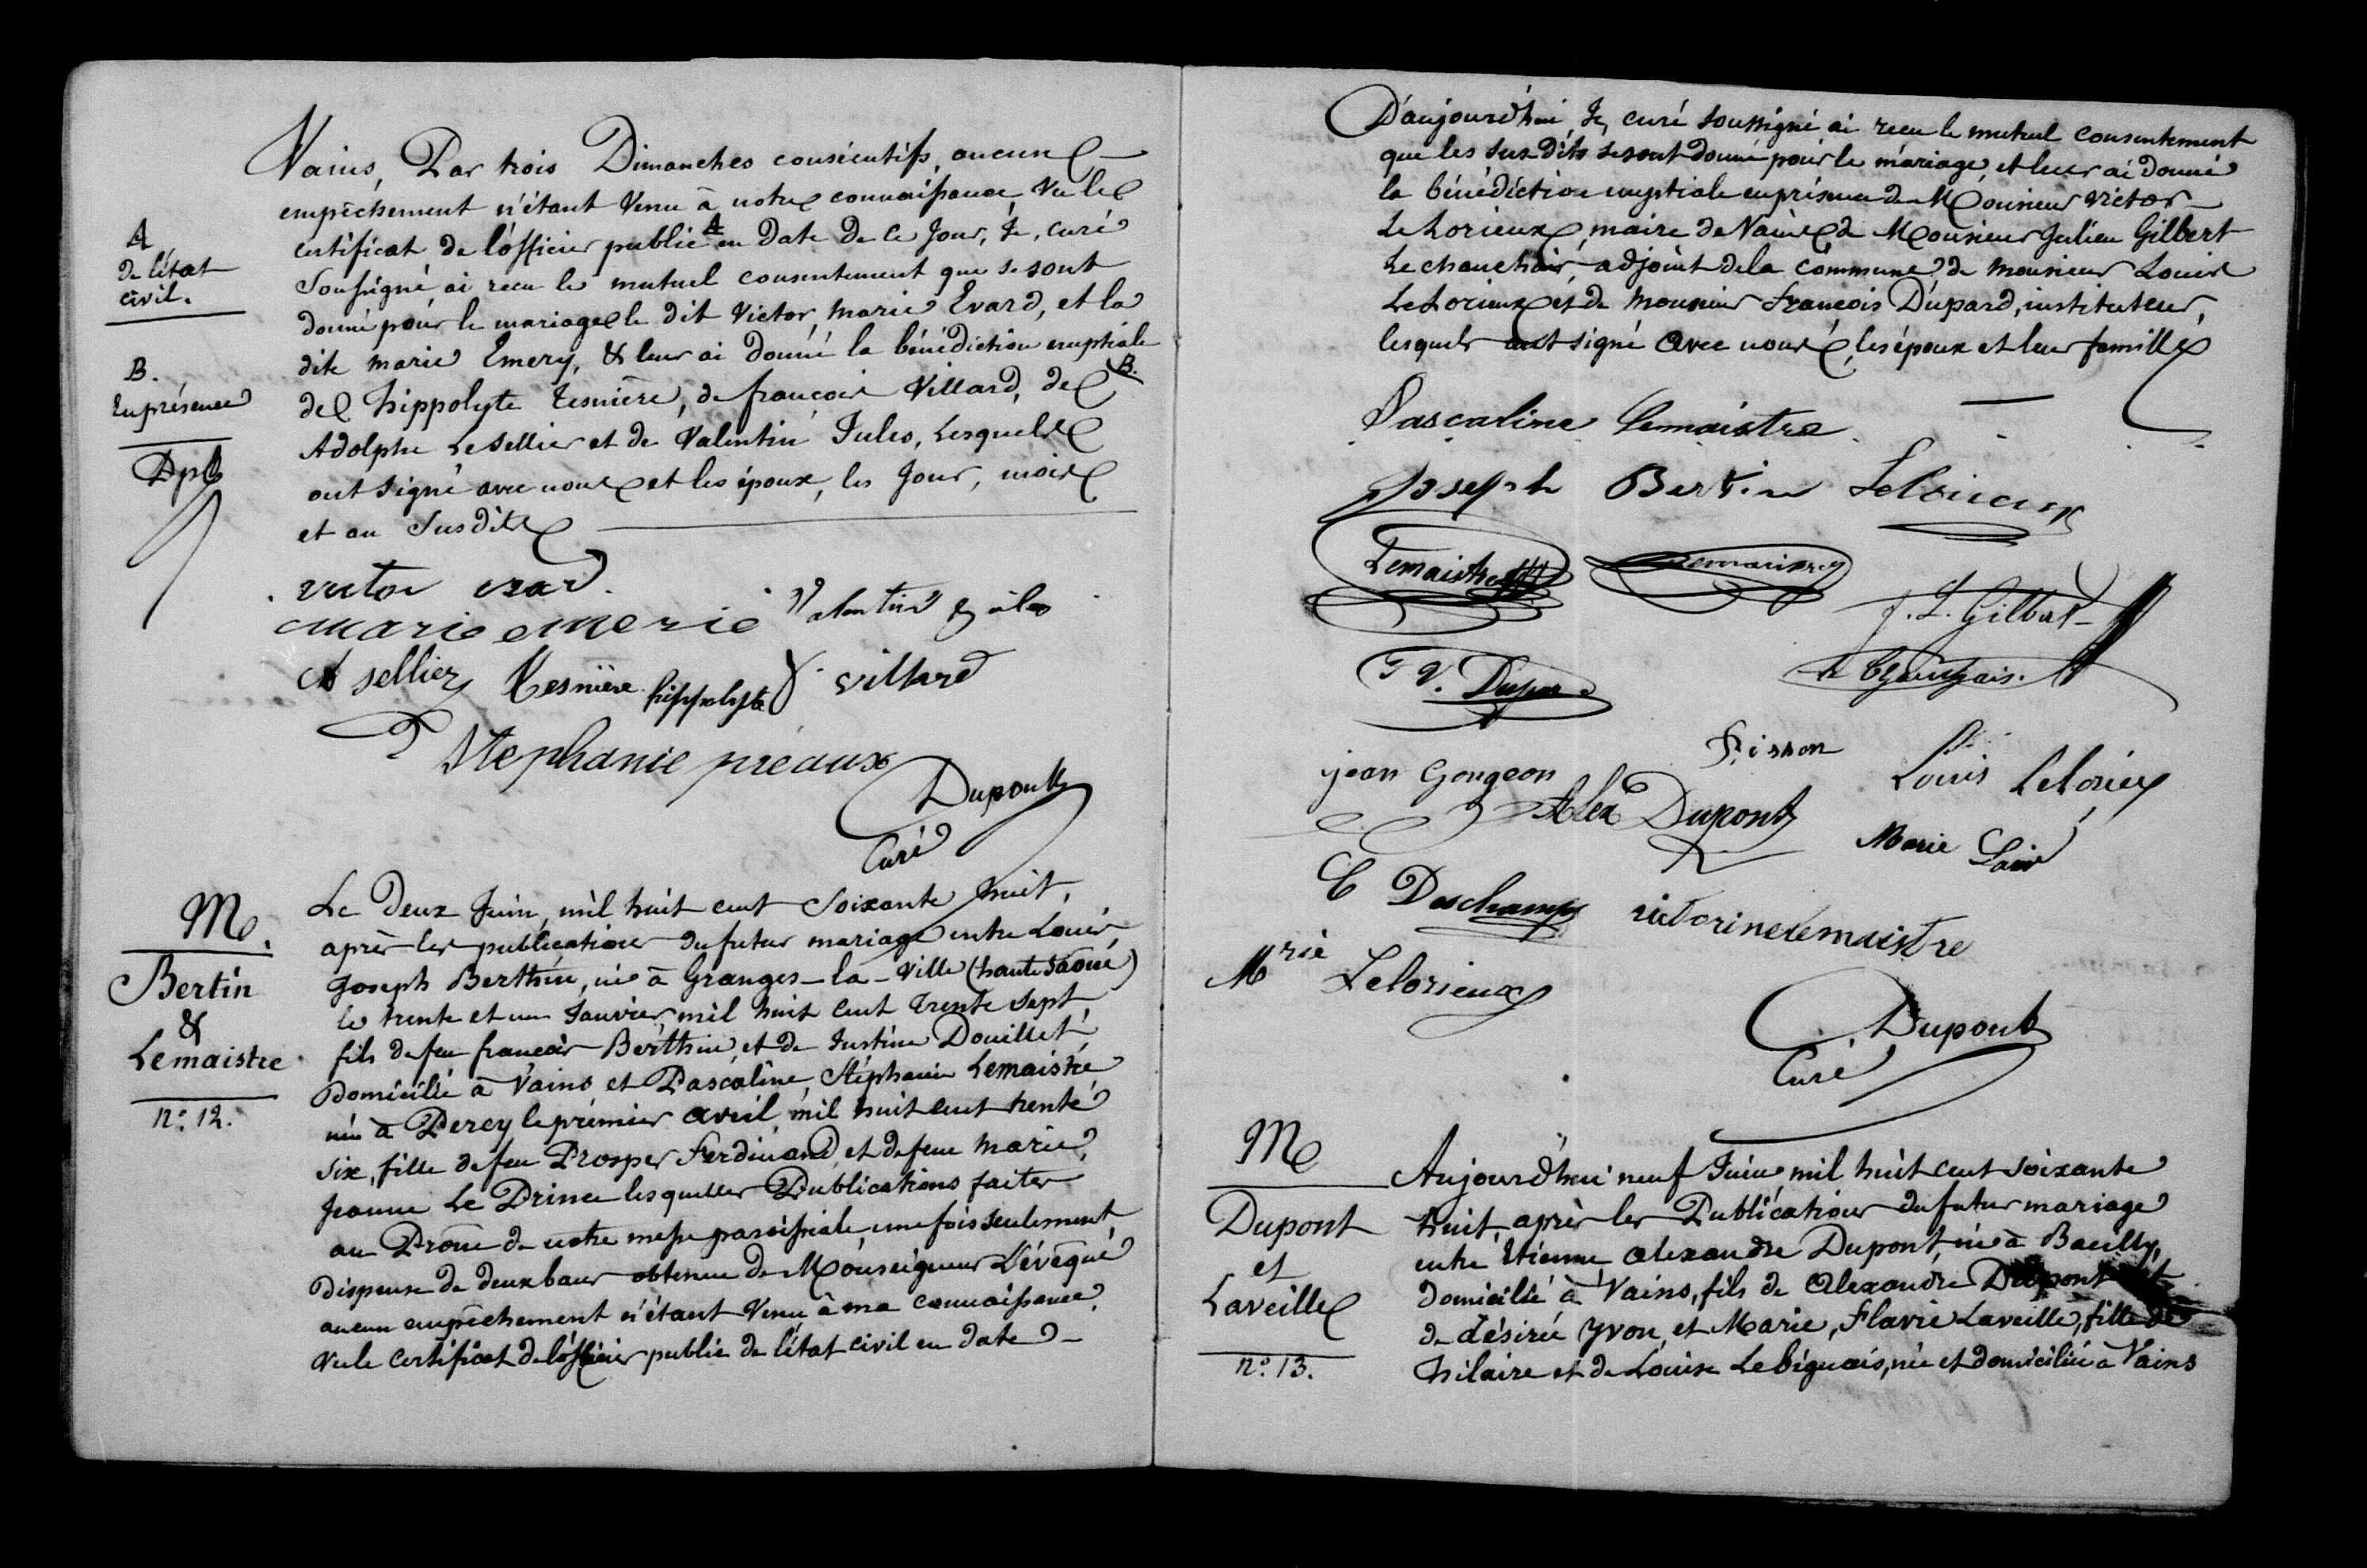 Vains, Par trois Dimanches consécutifs, aucun
empêchement n'étant Venu à notre connaissance, Vu le
certificat de l'officier public A en Date De ce Jour, Je, curé
Soussigné ai reçu le mutuel consentement que se sont
donné pour le mariage le dit Victor, Marie Evard, et la
dite marie Emery, & leur ai donné la bénédiction nuptiale B.
de hippolyte Tesnière, de françois Villard, de
Adolphe LeSellier et de Valentin Jules, Lesquels
ont Signé avec nous et les époux, les Jour, mois
et an Susdits
A
de l'état
civil.
B.
En présence
Dpt
victor evard.
marie emerie Valentin Jules
A sellier Tesnière hippolyte f. villard
Stephanie preaux
Dupont
Curé
M.
Bertin
&
Lemaistre
n°. 12.
Le Deux Juin, mil huit cent Soixante huit,
après les publications du futur mariage entre Louis,
Joseph Berthin, né à Granges-la-Ville (haute Saône)
le trente et un Janvier mil huit cent trente sept,
fils de feu françois Berthin, et de Justine Douillet,
Domicilié à Vains et Pascaline, Stéphanie Lemaistre
née à Percy le premier avril, mil huit cent trente
six, fille de feu Prosper Ferdinand, et de feue Marie,
Jeanne Le Prince lesquelles Publications faites
au Prône de notre messe paroissiale, une fois seulement,
Dispense de deux bans obtenue de Monseigneur L'évêque
aucun empêchement n'étant Venu à ma connaissance,
Vu le Certificat de l'officier public de l'état civil en date D-
D'aujourd'hui, Je, curé soussigné ai reçu le mutuel consentement
que les susdits se sont donné pour le mariage, et leur ai donné
la bénédiction nuptiale en présence de Monsieur Victor
Le Lorieux, maire de Vains, de Monsieur Julien Gilbert
Lechanchais, adjoint de la Commune de Monsieur Louis
LeLorieux et de Monsieur François Dupard, instituteur,
lesquels ont signé avec nous, les époux et leur famille
Pascaline Lemaistre
Joseph Bertin Lelorieux
Lemaistre
J. L. Gilbert
F V. Dupard
jean Gougeon Louis Lelorieux
Alex Dupont
Marie
C Deschamps victorine lemaistre
Mrie Lelorieux
Dupont
Curé
M
Dupont
et
Laveille
n°. 13.
Aujourd'hui neuf Juin mil huit cent soixante
huit, après les Publications du futur mariage
entre Etienne Alexandre Dupont, né à Bacilly,
domicilié à Vains, fils de Alexandre Dupont et
de désirée Yvon, et Marie, Flavie Laveille, fille de
hilaire et de Louise Lebiguais, née et domiciliée à Vains